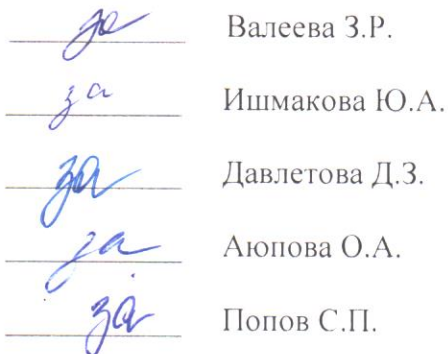 за Валеева З.Р.
за Ишмакова Ю.А.
за Давлетова Д.З.
за Аюпова О.А.
за Попов С.П.